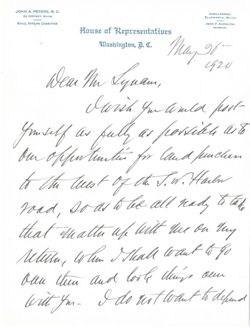 JOHN A. PETERS, M. C.
House of Representatives
Washington, D. C.
May 25
1920
Dear Mr Lynam,
I wish you would post
yourself as fully as possible as to
our opportunities for land purchase
to the west of the S. W. Harbor
road, so as to be all ready to take
that matter up with me on my
return, when I shall want to go
over them and look things over
with you - I do not want to depend